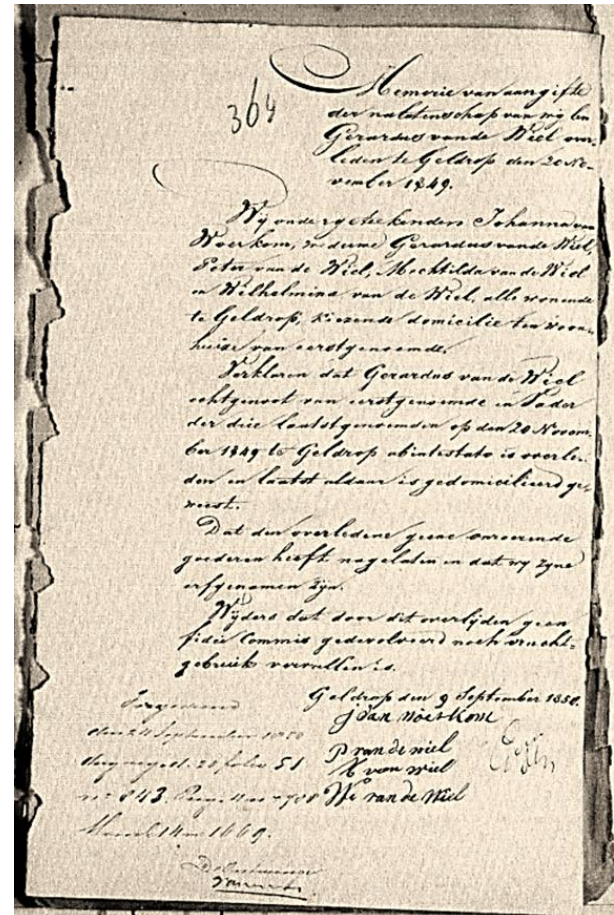 364
Memorie van aangifte
der nalatenschap van wijlen
Gerardus van de Wiel over-
leden te Geldrop den 20 No-
vember 1849.
Wij ondergetekenden Johanna van
Woerkom, weduwe Gerardus van de Wiel,
Peter van de Wiel, Mechtilda van de Wiel
en Wilhelmina van de Wiel, alle wonende
te Geldrop, kiezende domicilie ten woon-
huize van eerstgenoemde.
Verklaren dat Gerardus van de Wiel
echtgenoot van eerstgenoemde en Vader
der drie laatstgenoemden op den 20 Novem-
ber 1849 te Geldrop abintestato is overle-
den en laatst aldaar is gedomicilieerd ge-
weest.
Dat den overledene geene onroerende
goederen heeft nagelaten en dat wy zyne
erfgenamen zyn.
Wijders dat door dit overlijden geen
fidei Commis gedevolveerd noch vrucht-
gebruik vervallen is.
Geldrop den 9 September 1850.
J van Woerkom
P van de wiel
M van wiel
W van de Wiel
September 1850
folio 51
843.
1669.